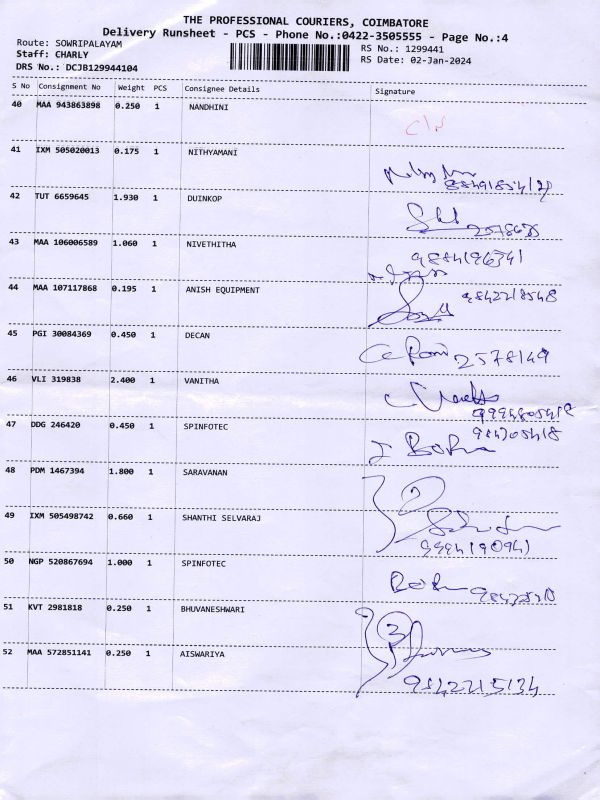 THE PROFESSIONAL COURIERS, COIMBATORE
Delivery Runsheet - PCS - Phone No.:0422-3505555 - Page No.:4
Route: SOWRIPALAYAM
Staff: CHARLY
DRS No.: DCJB129944104
RS No.: 1299441
RS Date: 02-Jan-2024
S No Consignment No Weight PCS Consignee Details Signature
40 MAA 943863898 0.250 1 NANDHINI
41 IXM 505020013 0.175 1 NITHYAMANI
42 TUT 6659645 1.930 1 DUINKOP
43 MAA 106006589 1.060 1 NIVETHITHA
44 MAA 107117868 0.195 1 ANISH EQUIPMENT 9842218548
45 PGI 30084369 0.450 1 DECAN 2578149
46 VLI 319838 2.400 1 VANITHA
47 DDG 246420 0.450 1 SPINFOTEC
48 PDM 1467394 1.800 1 SARAVANAN
49 IXM 505498742 0.660 1 SHANTHI SELVARAJ
50 NGP 520867694 1.000 1 SPINFOTEC
51 KVT 2981818 0.250 1 BHUVANESHWARI
52 MAA 572851141 0.250 1 AISWARIYA
9842215134